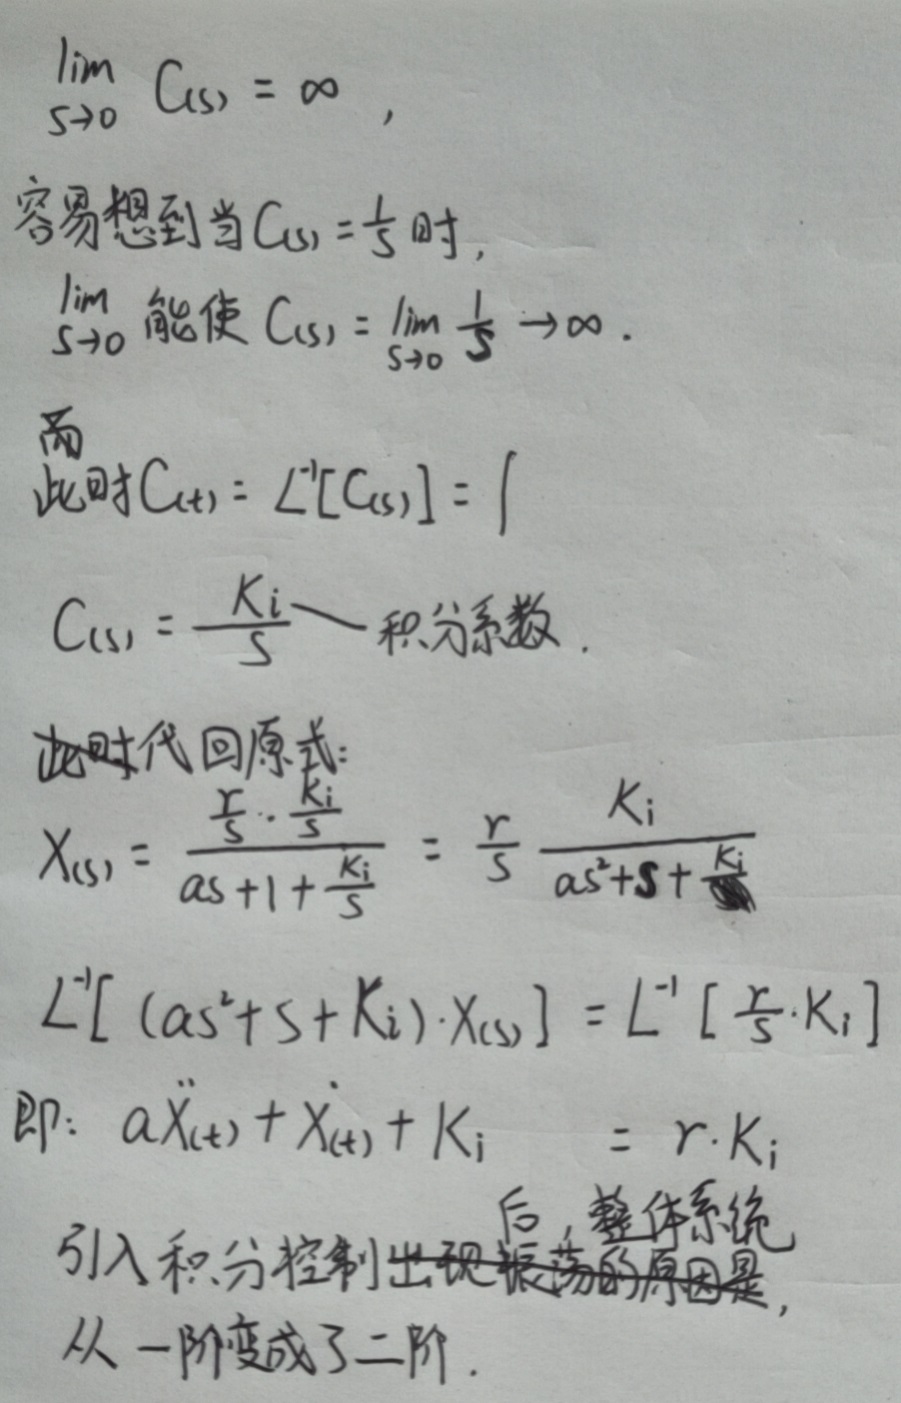 lim C(s) = ∞ ,
s→0
容易想到当 C(s) = 1/s 时,
lim 能使 C(s) = lim 1/s → ∞ .
s→0 s→0
而
此时 C(t) = L⁻¹[C(s)] = ∫
C(s) = Ki/s 积分系数 .
代回原式:
X(s) = (r/s · Ki/s) / (as + 1 + Ki/s) = r/s Ki / (as² + s + Ki)
L⁻¹[ (as² + s + Ki) · X(s) ] = L⁻¹ [ r/s · Ki ]
即: aẌ(t) + Ẋ(t) + Ki = r · Ki
引入积分控制后, 整体系统
从一阶变成了二阶 .